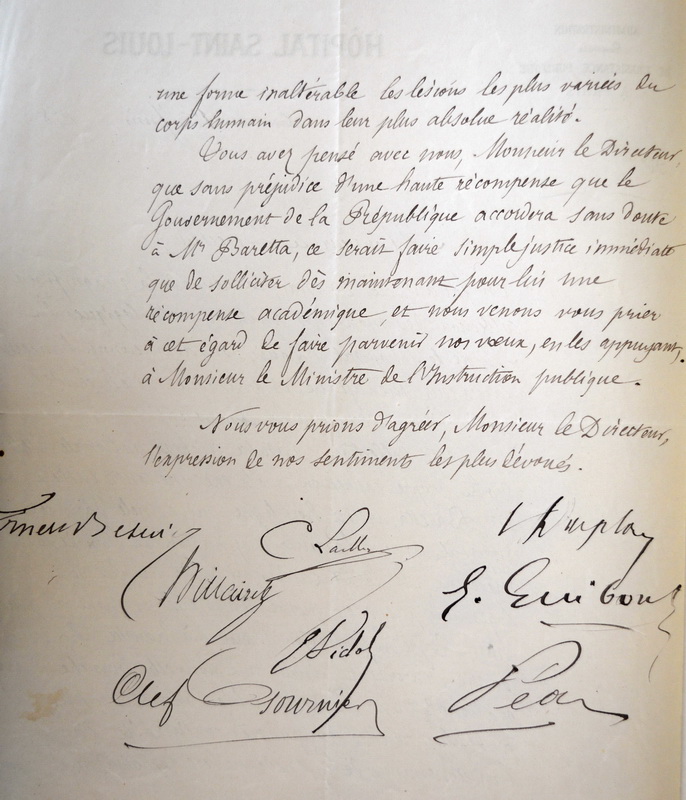 HÔPITAL SAINT-LOUIS
une forme inaltérable les lésions les plus variées du
corps humain dans leur plus absolue réalité.
Vous avez pensé avec nous, Monsieur le Directeur,
que sans préjudice d'une haute récompense que le
Gouvernement de la République accordera sans doute
à Mr Baretta, ce serait faire simple justice immédiate
que de solliciter dès maintenant pour lui une
récompense académique, et nous venons vous prier
à cet égard de faire parvenir nos vœux, en les appuyant,
à Monsieur le Ministre de l'Instruction publique.
Nous vous prions d'agréer, Monsieur le Directeur,
l'expression de nos sentiments les plus dévoués.
Ernest Besnier
C Lailler
E. Guibout
E Vidal
Alf Fournier
Péan